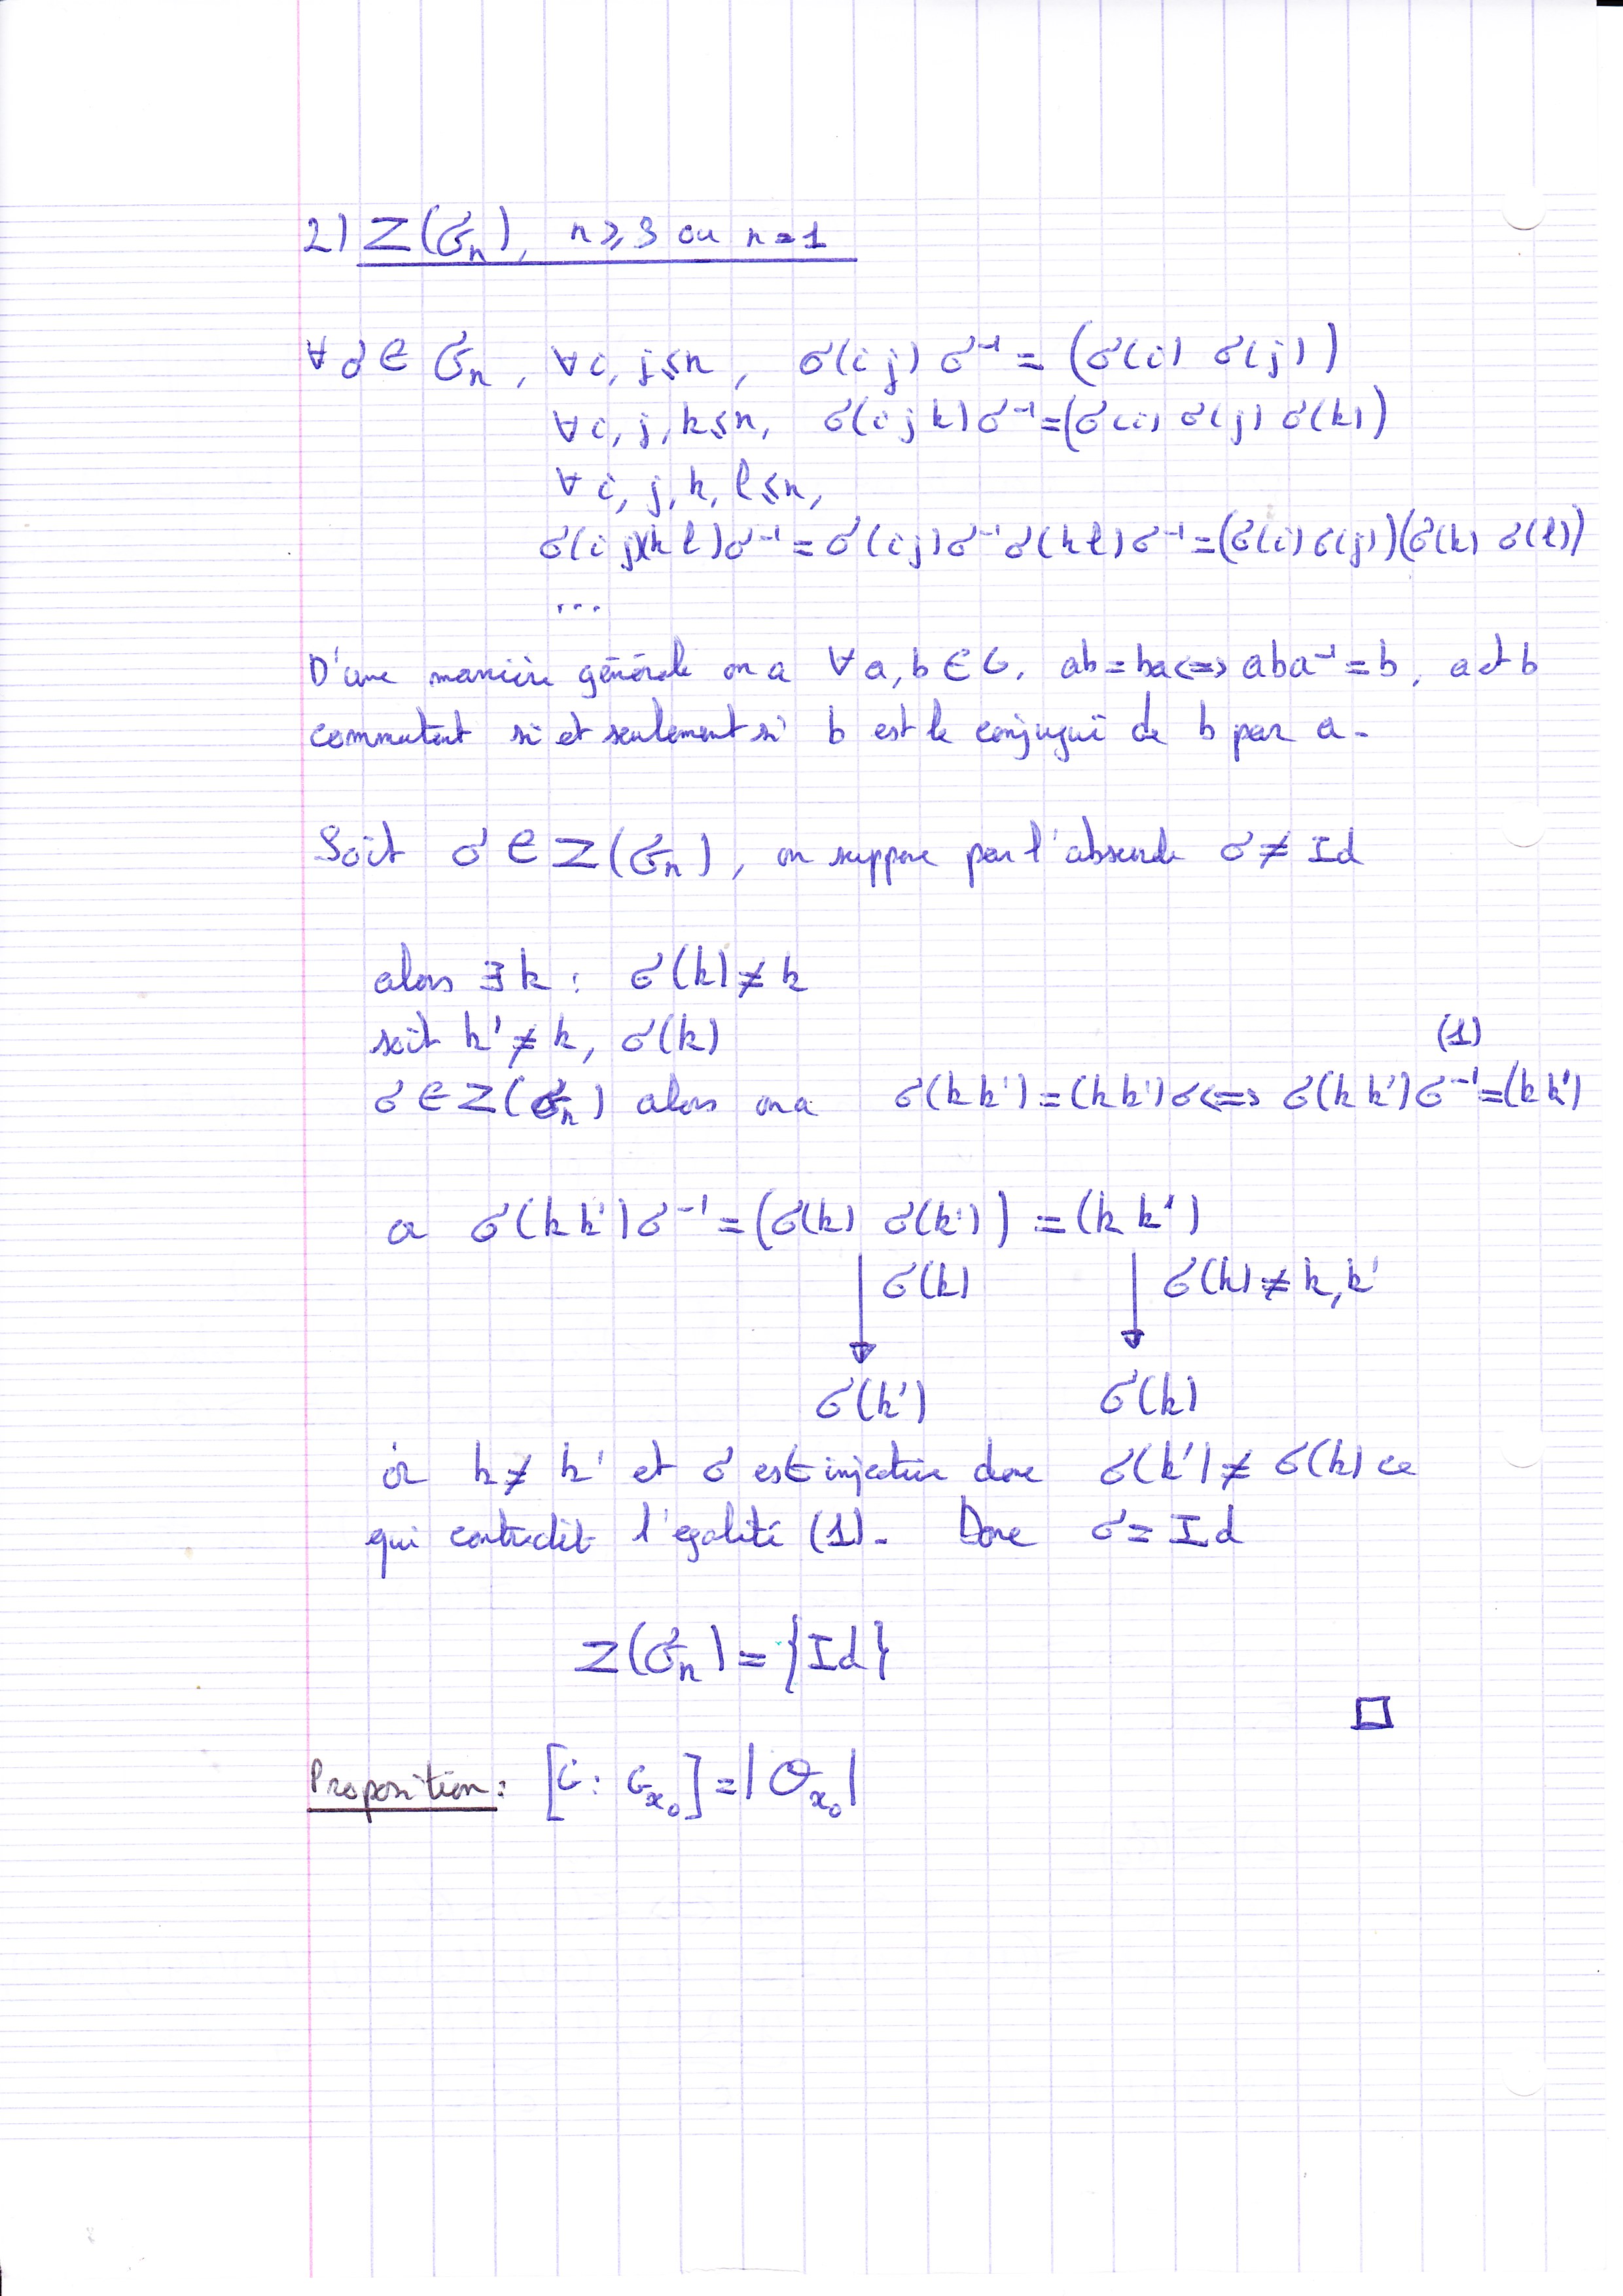 2) Z(𝔖n), n ⩾ 3 ou n = 1
∀ σ ∈ 𝔖n, ∀ i, j ⩽ n, σ(i j) σ⁻¹ = (σ(i) σ(j))
∀ i, j, k ⩽ n, σ(i j k) σ⁻¹ = (σ(i) σ(j) σ(k))
∀ i, j, k, l ⩽ n,
σ(i j)(k l)σ⁻¹ = σ(i j)σ⁻¹ σ(k l)σ⁻¹ = (σ(i) σ(j))(σ(k) σ(l))
...
D'une manière générale on a ∀ a, b ∈ G, ab = ba <=> aba⁻¹ = b, a et b
commutent si et seulement si b est le conjugué de b par a.
Soit σ ∈ Z(𝔖n), on suppose par l'absurde σ ≠ Id
alors ∃ k : σ(k) ≠ k
soit k' ≠ k, σ(k)
(1)
σ ∈ Z(𝔖n) alors on a σ(k k') = (k k')σ <=> σ(k k')σ⁻¹ = (k k')
or σ(k k')σ⁻¹ = (σ(k) σ(k')) = (k k')
↓ σ(k) ↓ σ(k) ≠ k, k'
σ(k') σ(k)
or k ≠ k' et σ est injective donc σ(k') ≠ σ(k) ce
qui contredit l'égalité (1). Donc σ = Id
Z(𝔖n) = {Id}
□
Proposition : [G : Gx₀] = |Ox₀|